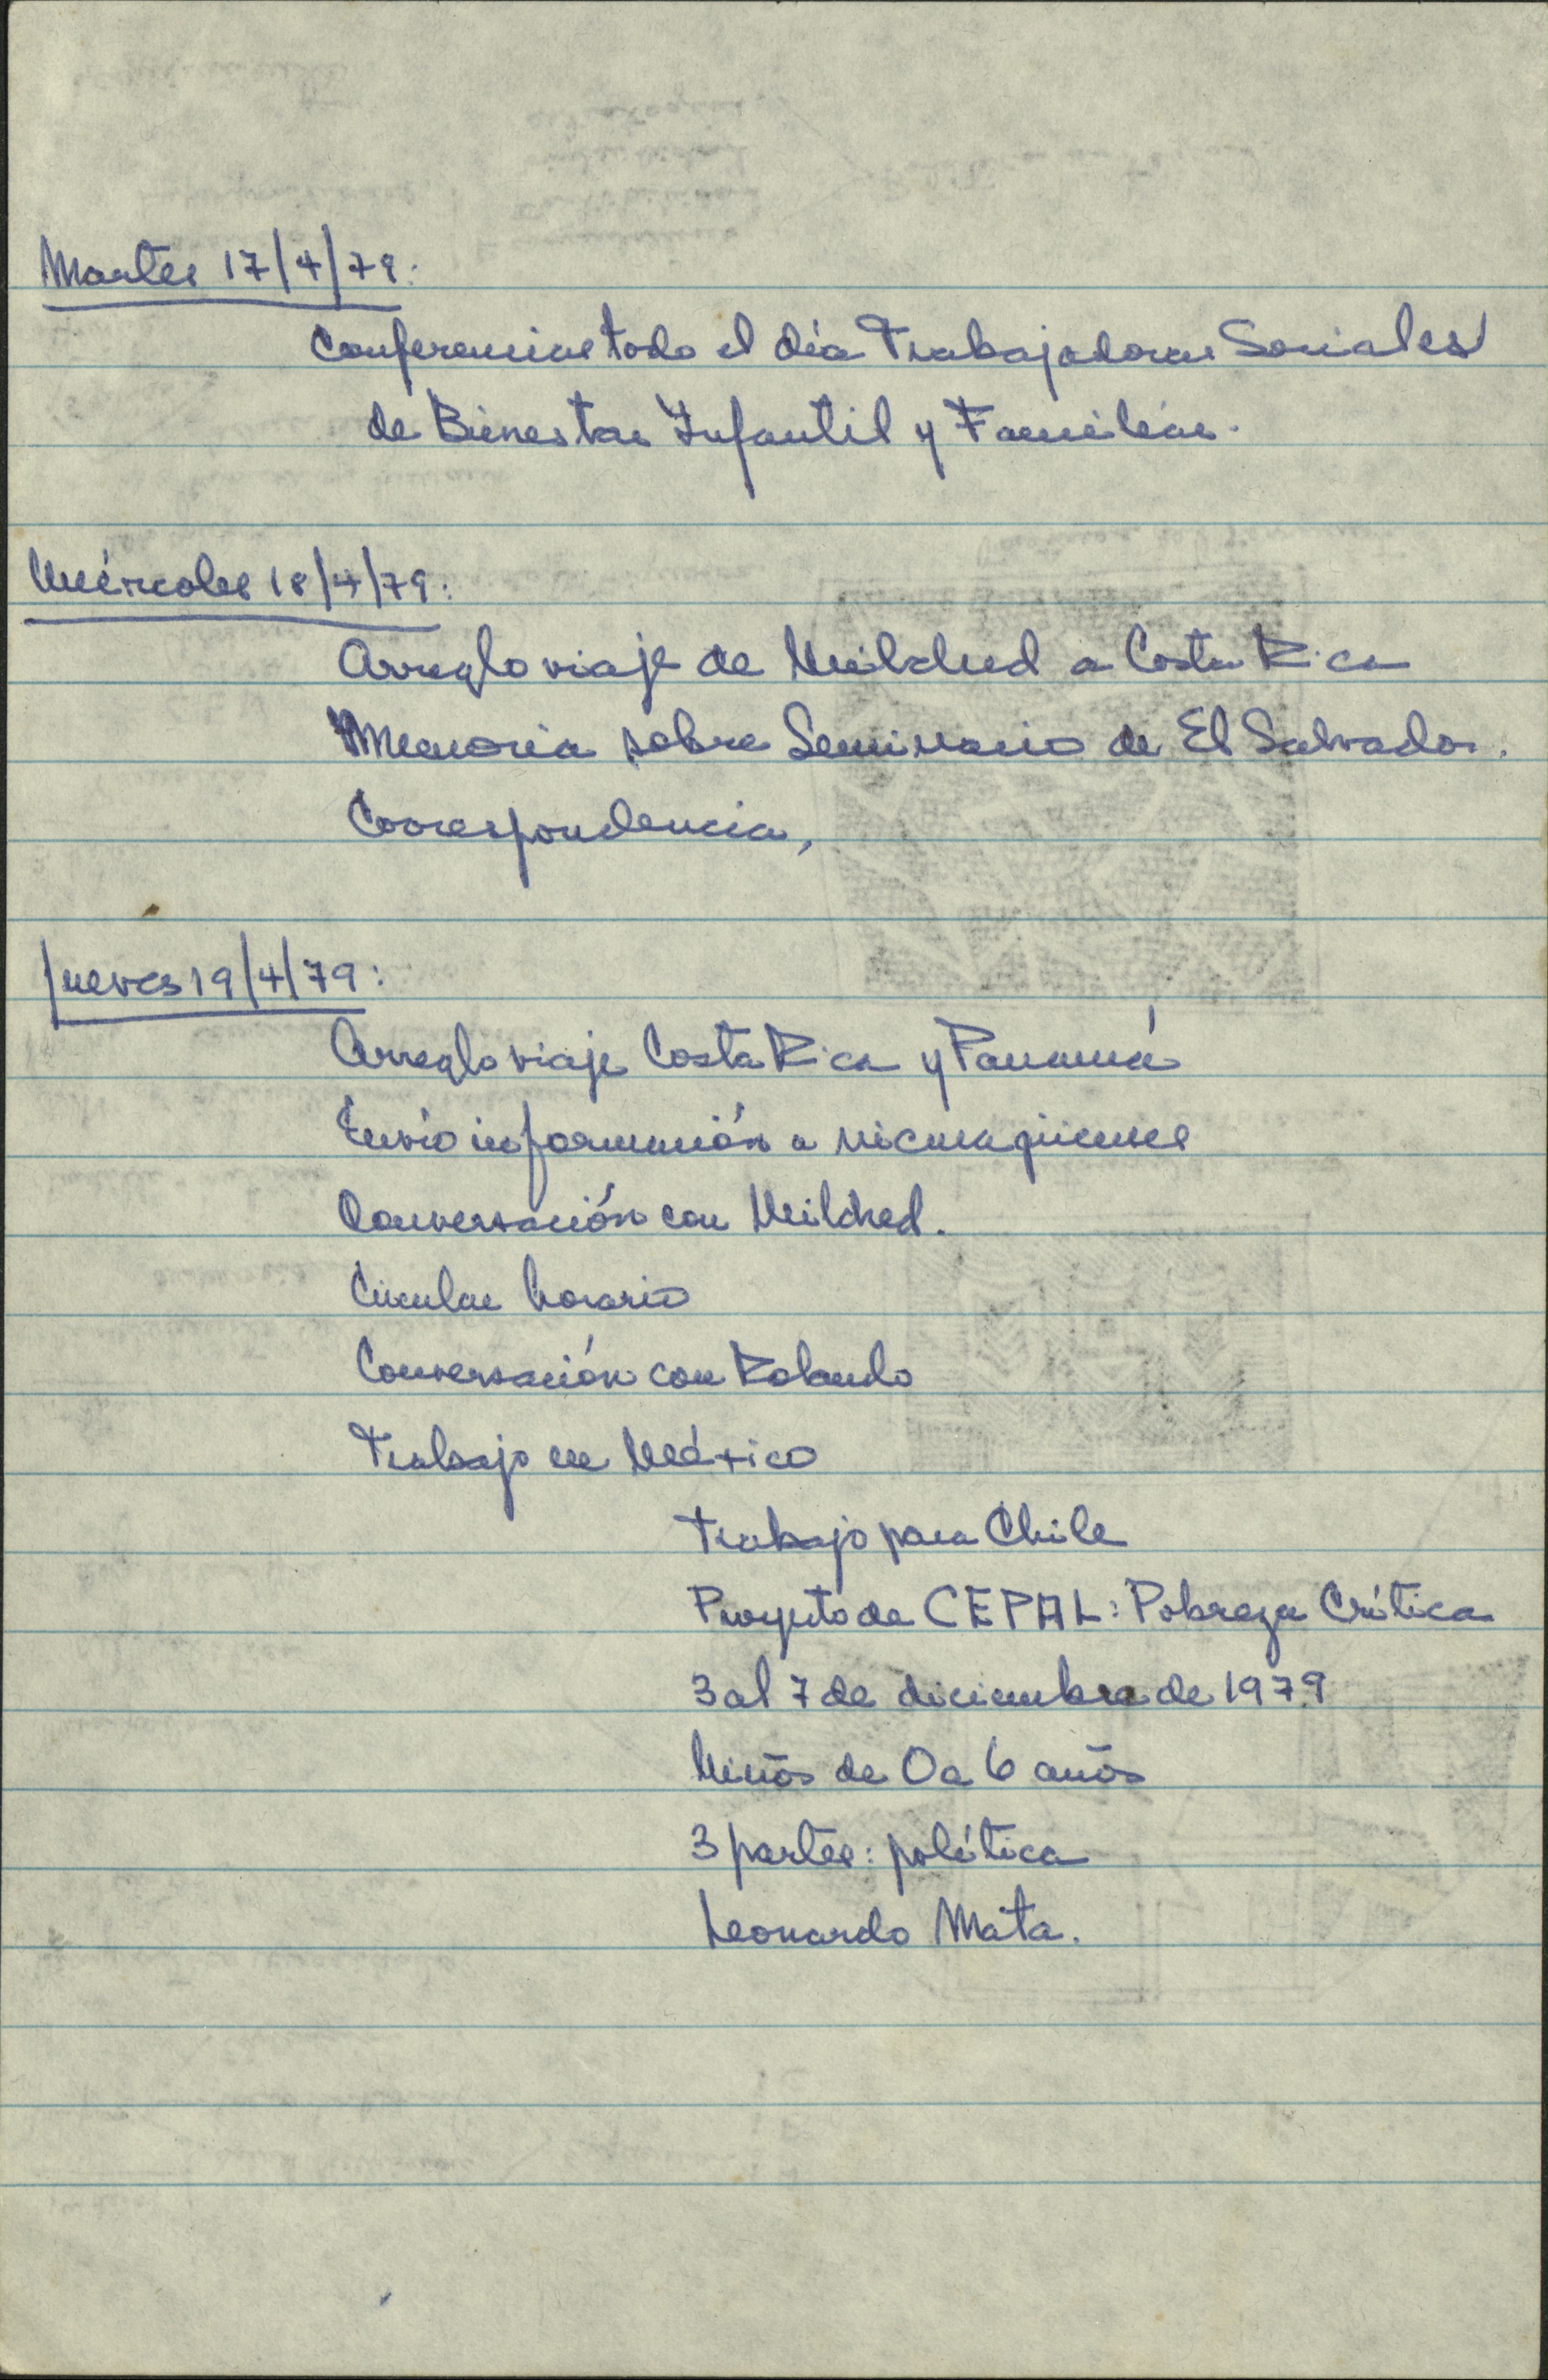 Martes 17/4/79:
Conferencias todo el día Trabajadoras Sociales
de Bienestar Infantil y Familiar.
Miércoles 18/4/79:
Arreglo viaje de Mildred a Costa Rica
Memoria sobre Seminario de El Salvador.
Correspondencia,
Jueves 19/4/79:
Arreglo viaje Costa Rica y Panamá
Envío información a nicaragüenses
Conversación con Mildred.
Circular horario
Conversación con Rolando
Trabajo en México
Trabajo para Chile
Proyecto de CEPAL: Pobreza Crítica
3 al 7 de diciembre de 1979
Niños de 0 a 6 años
3 partes: política
Leonardo Mata.